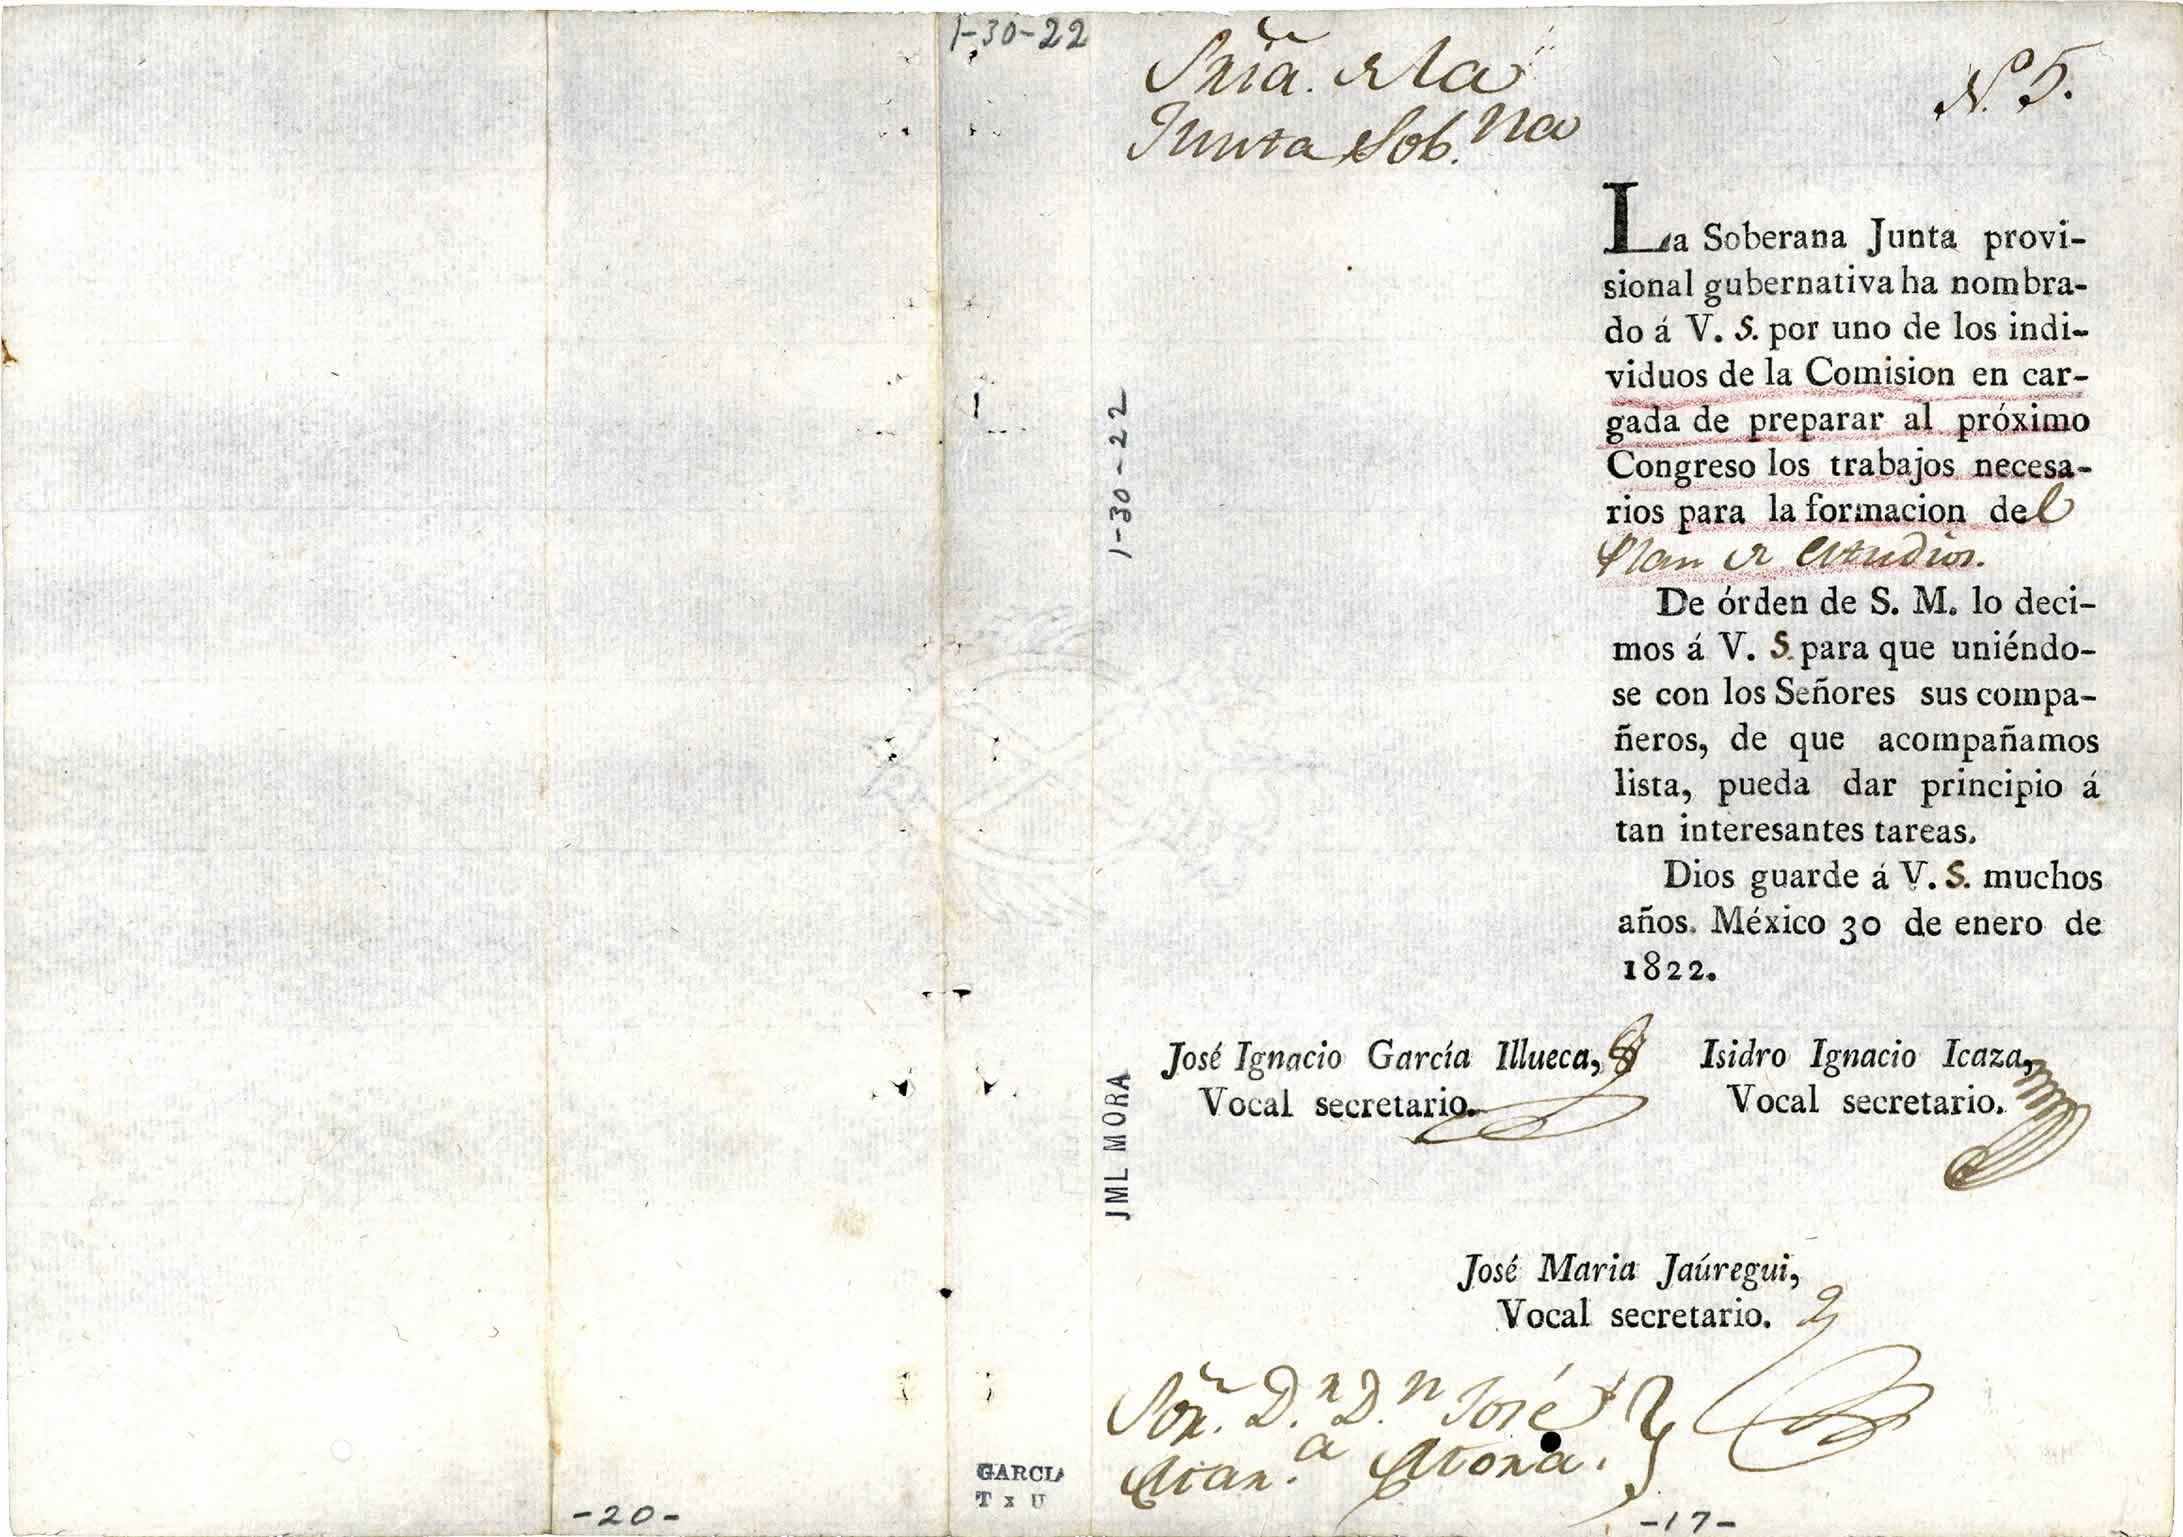 1-30-22
Sría. de la
Junta Sob.na
N. 5.
La Soberana Junta provi-
sional gubernativa ha nombra-
do á V. S. por uno de los indi-
viduos de la Comision en car-
gada de preparar al próximo
Congreso los trabajos necesa-
rios para la formacion del
Plan de estudios.
De órden de S. M. lo deci-
mos á V. S. para que uniéndo-
se con los Señores sus compa-
ñeros, de que acompañamos
lista, pueda dar principio á
tan interesantes tareas.
Dios guarde á V. S. muchos
años. México 30 de enero de
1822.
1-30-22
José Ignacio García Illueca,
Vocal secretario.
Isidro Ignacio Icaza,
Vocal secretario.
JML MORA
José Maria Jaúregui,
Vocal secretario.
Sor. D.n D.n José
Mar.a Mora.
GARCIA
T x U
-20-
-17-